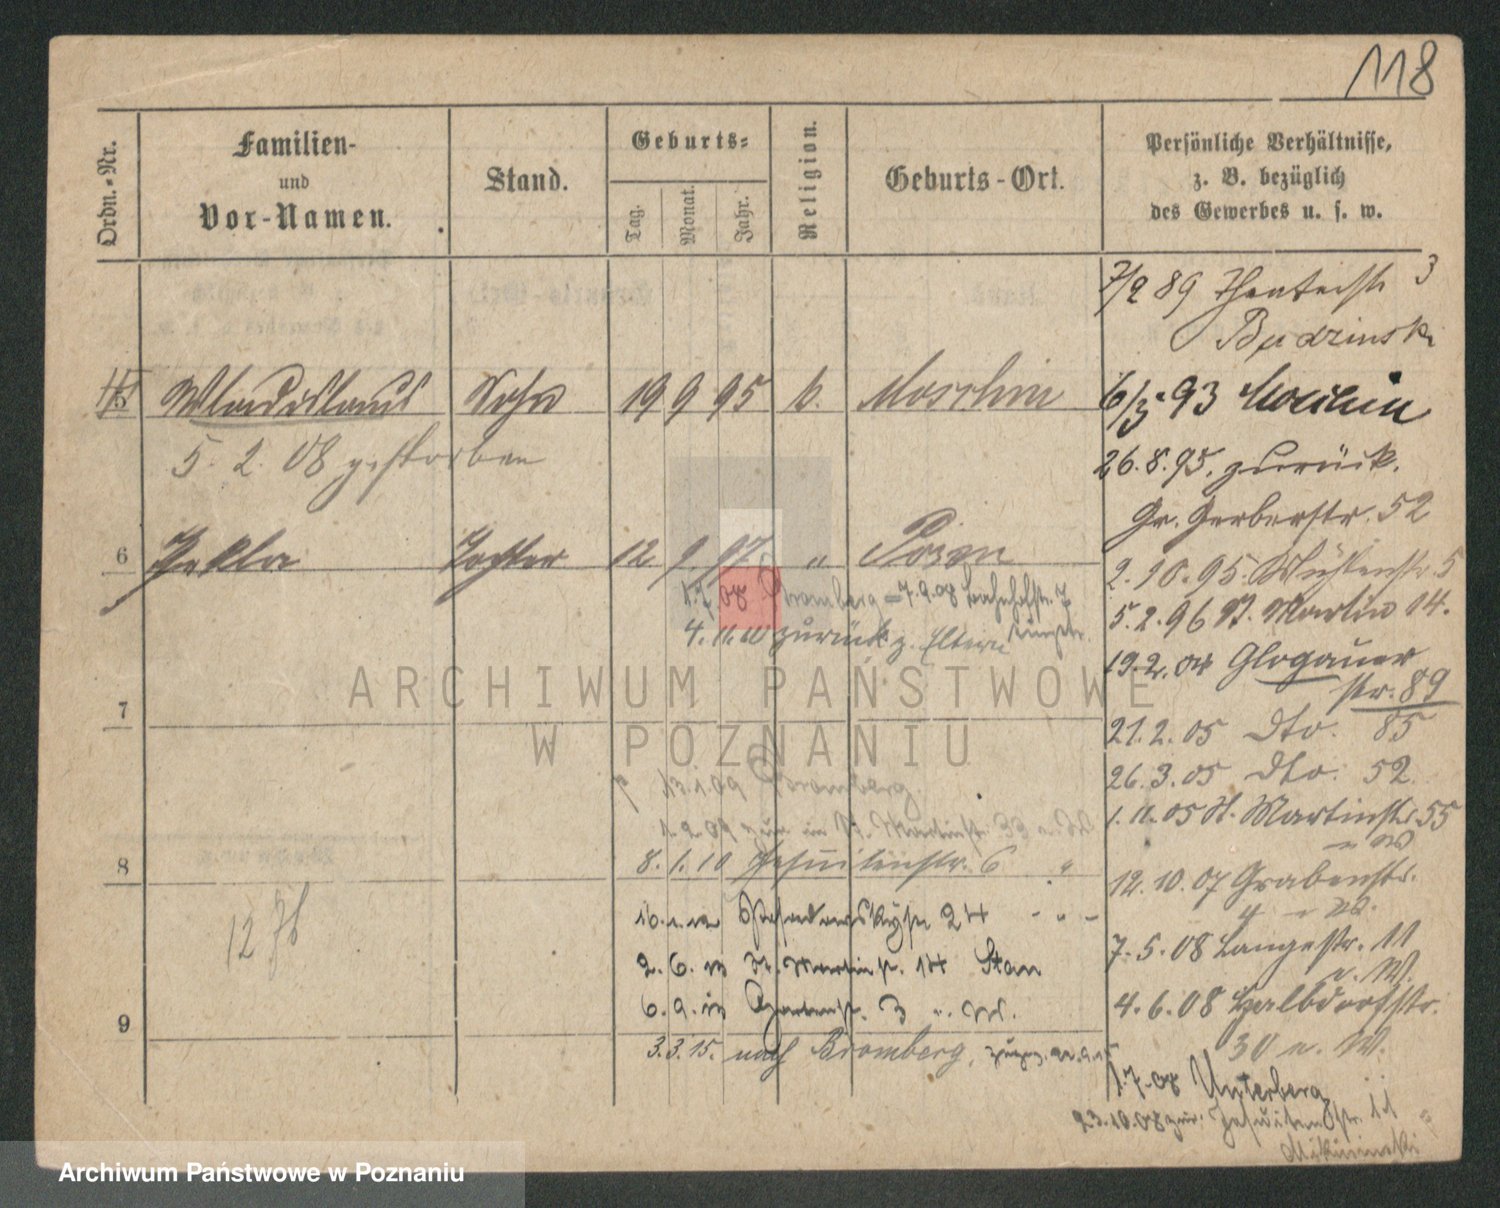 118
Ordn.-Nr.
Familien-
und
Vor-Namen.
Stand.
Geburts-
Tag.
Monat.
Jahr.
Religion.
Geburts-Ort.
Persönliche Verhältnisse,
z. B. bezüglich
des Gewerbes u. s. w.
7/2 89 Theaterstr 3
Budzinski
5 Wladislaus Sohn 19 9 95 k. Moschin
5. 2. 08 gestorben
6/5 93 Moschin
26.8.95. zurück.
Gr. Gerberstr. 52
6 Thekla Tochter 12 9 97 " Posen
1.7 08 Bromberg = 7.9.08 Bahnhofstr. 7
4.11.10 zurück z. Eltern
2.10.95. Mühlenstr. 5
5.2.96 St. Martin 14.
19.2.04 Glogauer
str. 89
7
21.2.05 dto. 85
26.3.05 dto. 52
1.11.05 St. Martinstr. 55
13.1.09 Bromberg.
1.2.09 zur. in St. Martinstr. 33
8
8.1.10 Jesuitenstr. 6 "
12.10.07 Grabenstr.
4
24 - " -
7.5.08 Langestr. 11
u. W.
2.6. St. Martinstr. 14
6.9. Gartenstr. 3 "
4.6.08 Halbdorfstr.
30 u. W.
9
3.3.15. nach Bromberg,
1.7.08 Unterberg
23.10.08 zur: Jesuitenstr. 11
12
ARCHIWUM PAŃSTWOWE
W POZNANIU
Archiwum Państwowe w Poznaniu